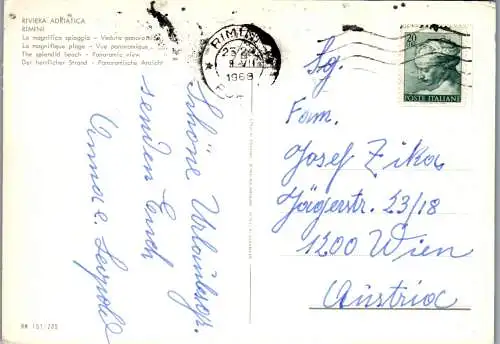 RIVIERA ADRIATICA
RIMINI
La magnifica spiaggia - Veduta panoramica
La magnifique plage - Vue panoramique
The splendid beach - Panoramic view
Der herrlicher Strand - Panoramische Ansicht
RIMINI
1968
20
POSTE ITALIANE
Schöne Urlaubsgr.
senden Euch
Anna u. Leopold
Sg.
Fam.
Josef Zika
Jägerstr. 23/18
1200 Wien
Austria
RR 151/225